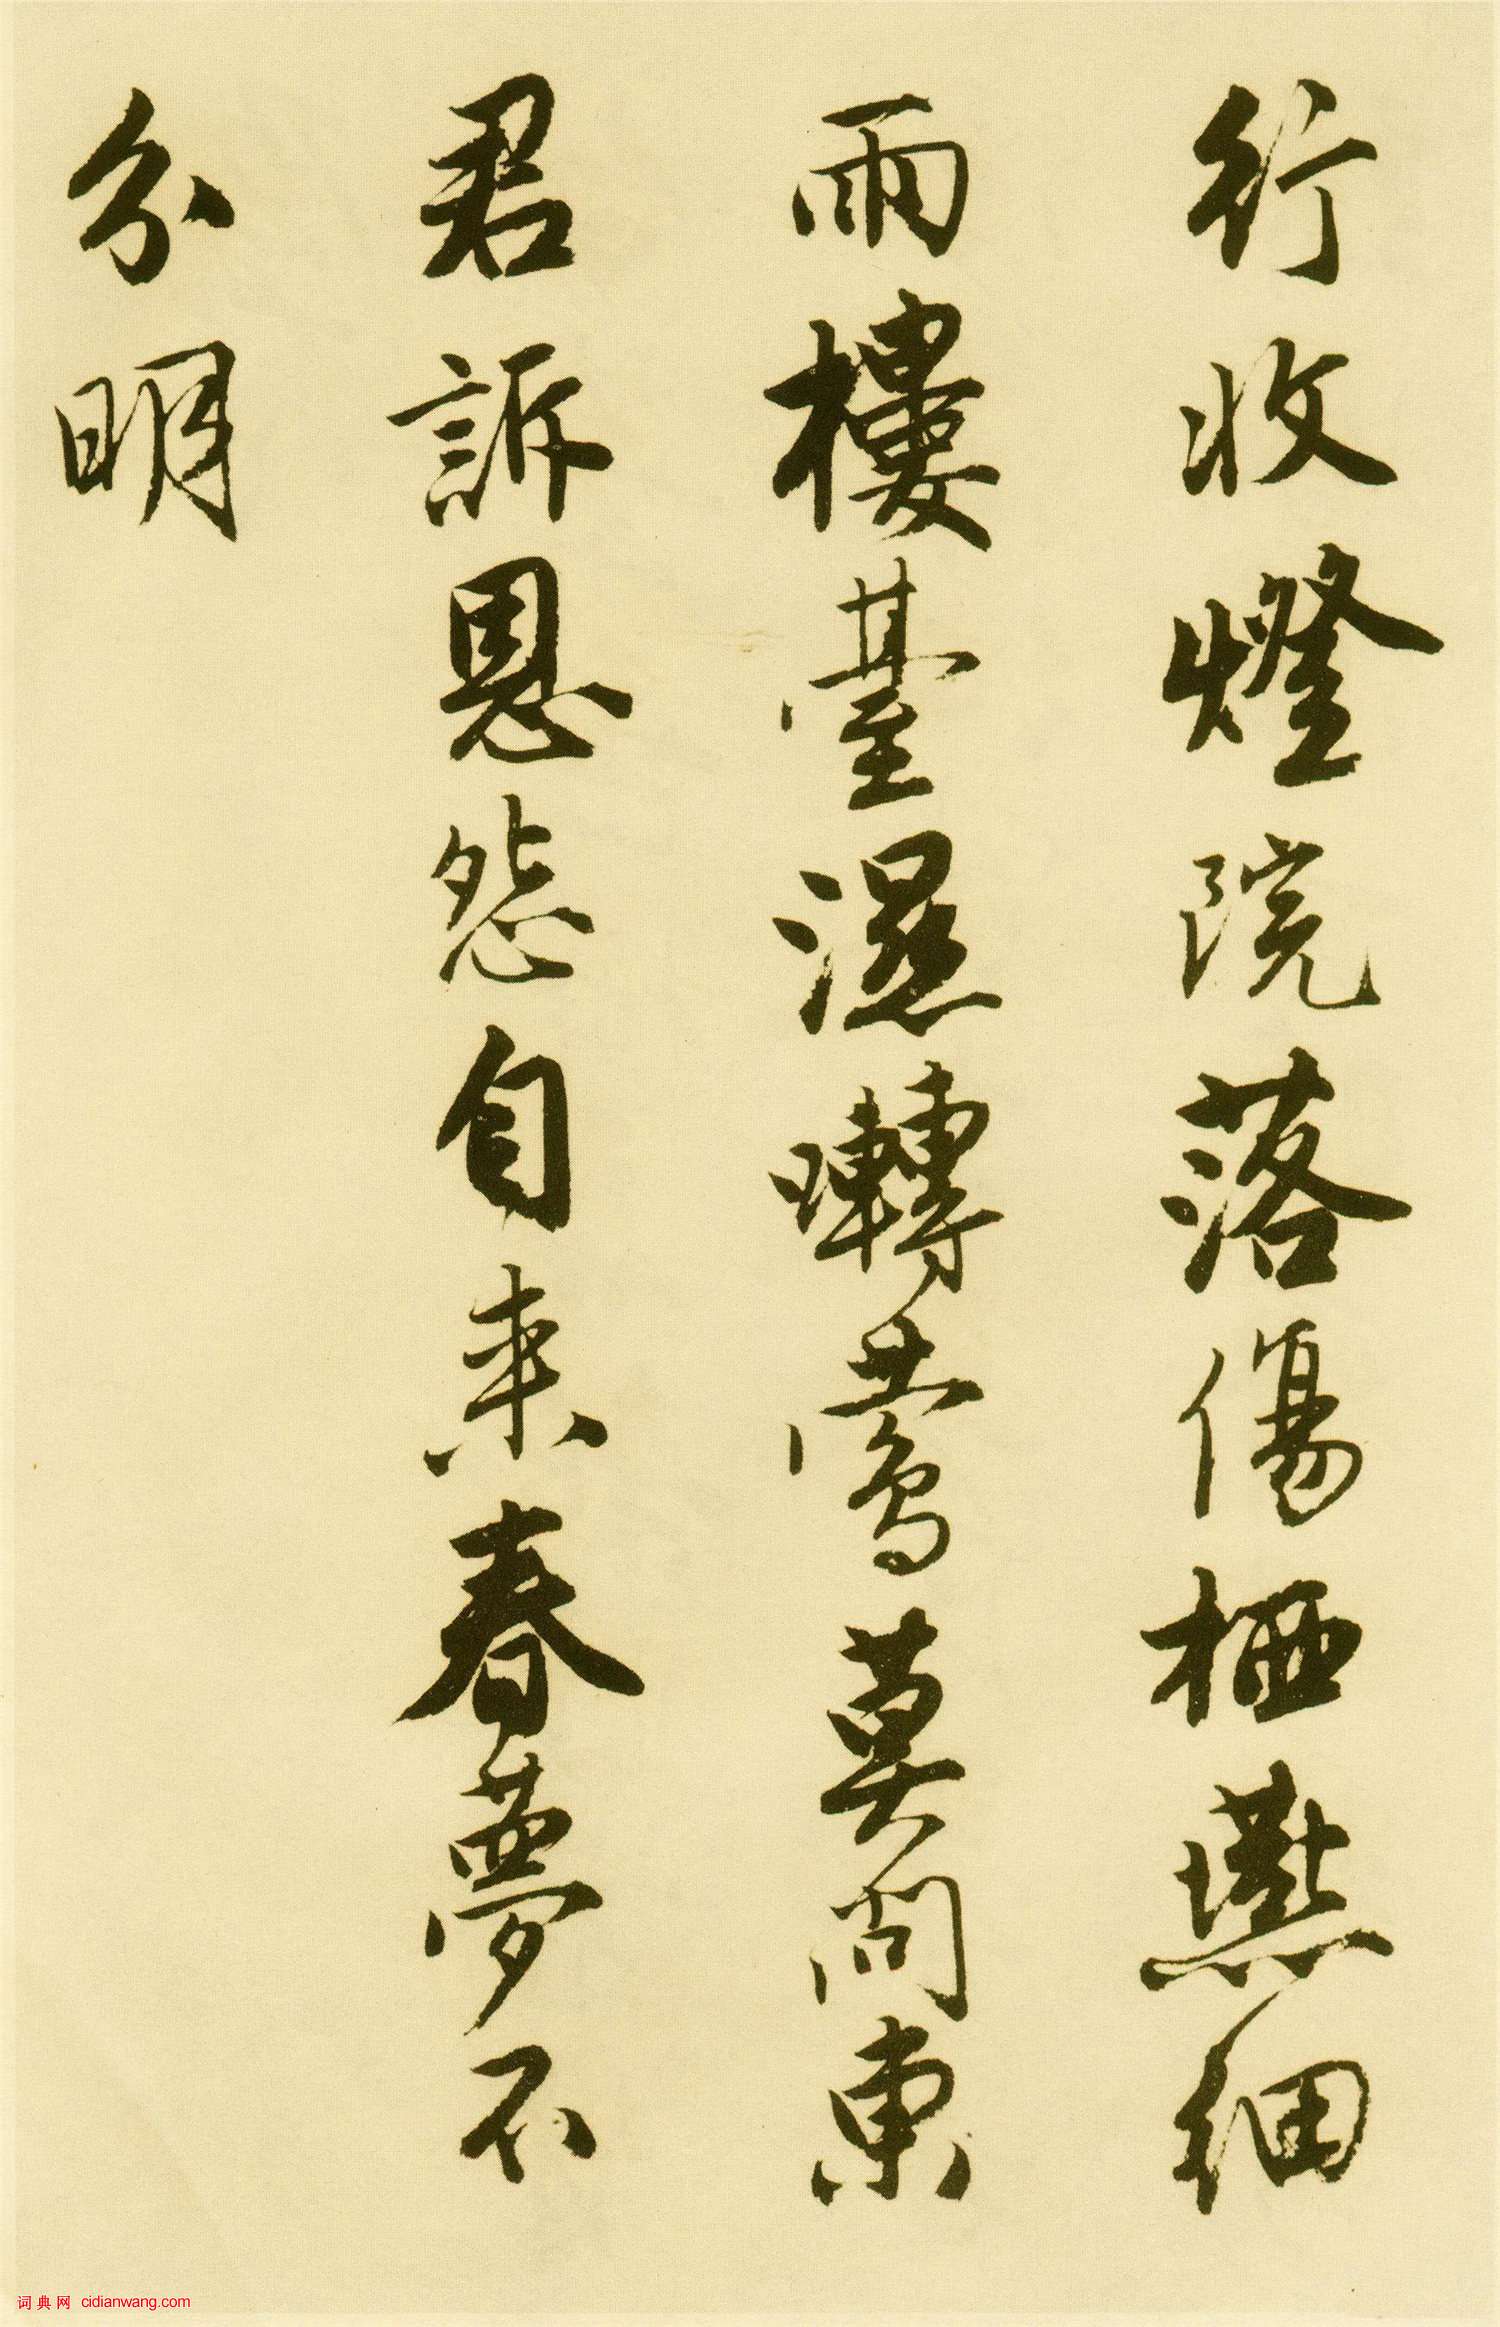 行收燈院落傷栖燕細
雨樓臺濕囀鶯莫問東
君訴恩怨自来春夢不
分明
词典网 cidianwang.com